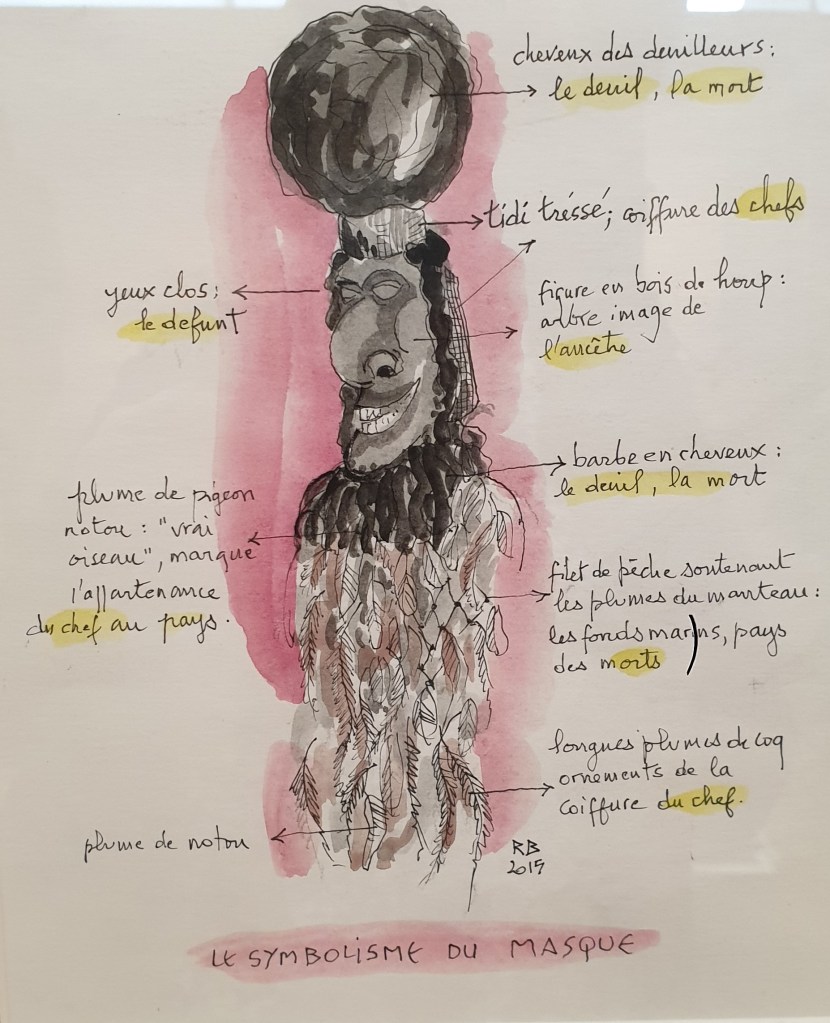 cheveux des deuilleurs :
le deuil, la mort
tidi tréssé; coiffure des chefs
yeux clos :
le defunt
figure en bois de houp :
arbre image de
l'ancêtre
barbe en cheveux :
le deuil, la mort
plume de pigeon
notou : "vrai
oiseau", marque
l'appartenance
du chef au pays.
filet de pêche soutenant
les plumes du manteau :
les fonds marins, pays
des morts
longues plumes de coq
ornements de la
coiffure du chef.
plume de notou
RB
2015
LE SYMBOLISME DU MASQUE